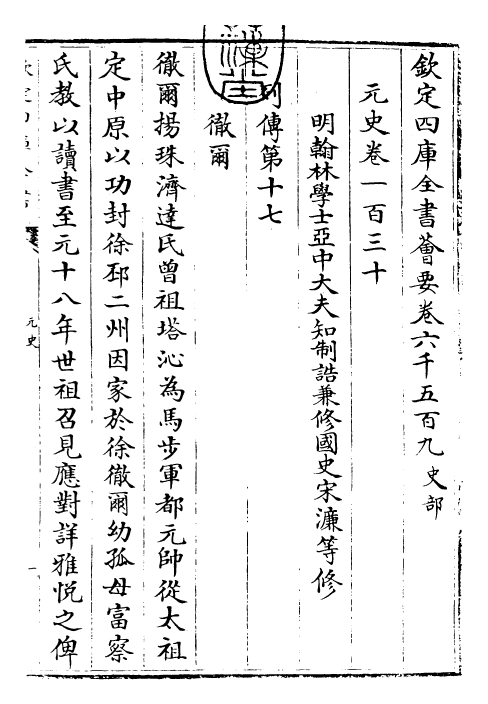 欽定四庫全書薈要卷六千五百九史部
元史卷一百三十
明翰林學士亞中大夫知制誥兼修國史宋濂等修
列傳第十七
徹爾
徹爾揚珠濟達氏曾祖塔沁為馬步軍都元帥從太祖
定中原以功封徐邳二州因家於徐徹爾幼孤母富察
氏教以讀書至元十八年世祖召見應對詳雅悅之俾
元史
一